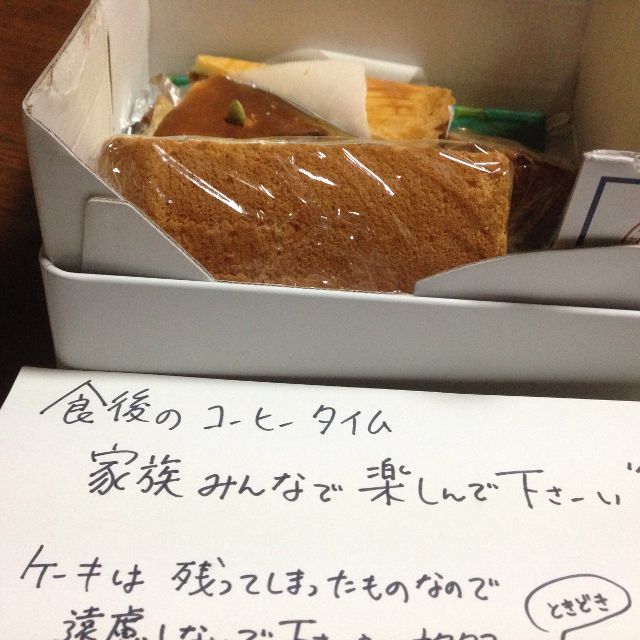 食後の コーヒータイム
家族 みんなで 楽しんで下さーい
ケーキは 残ってしまったものなので
遠慮しないで下さい
ときどき